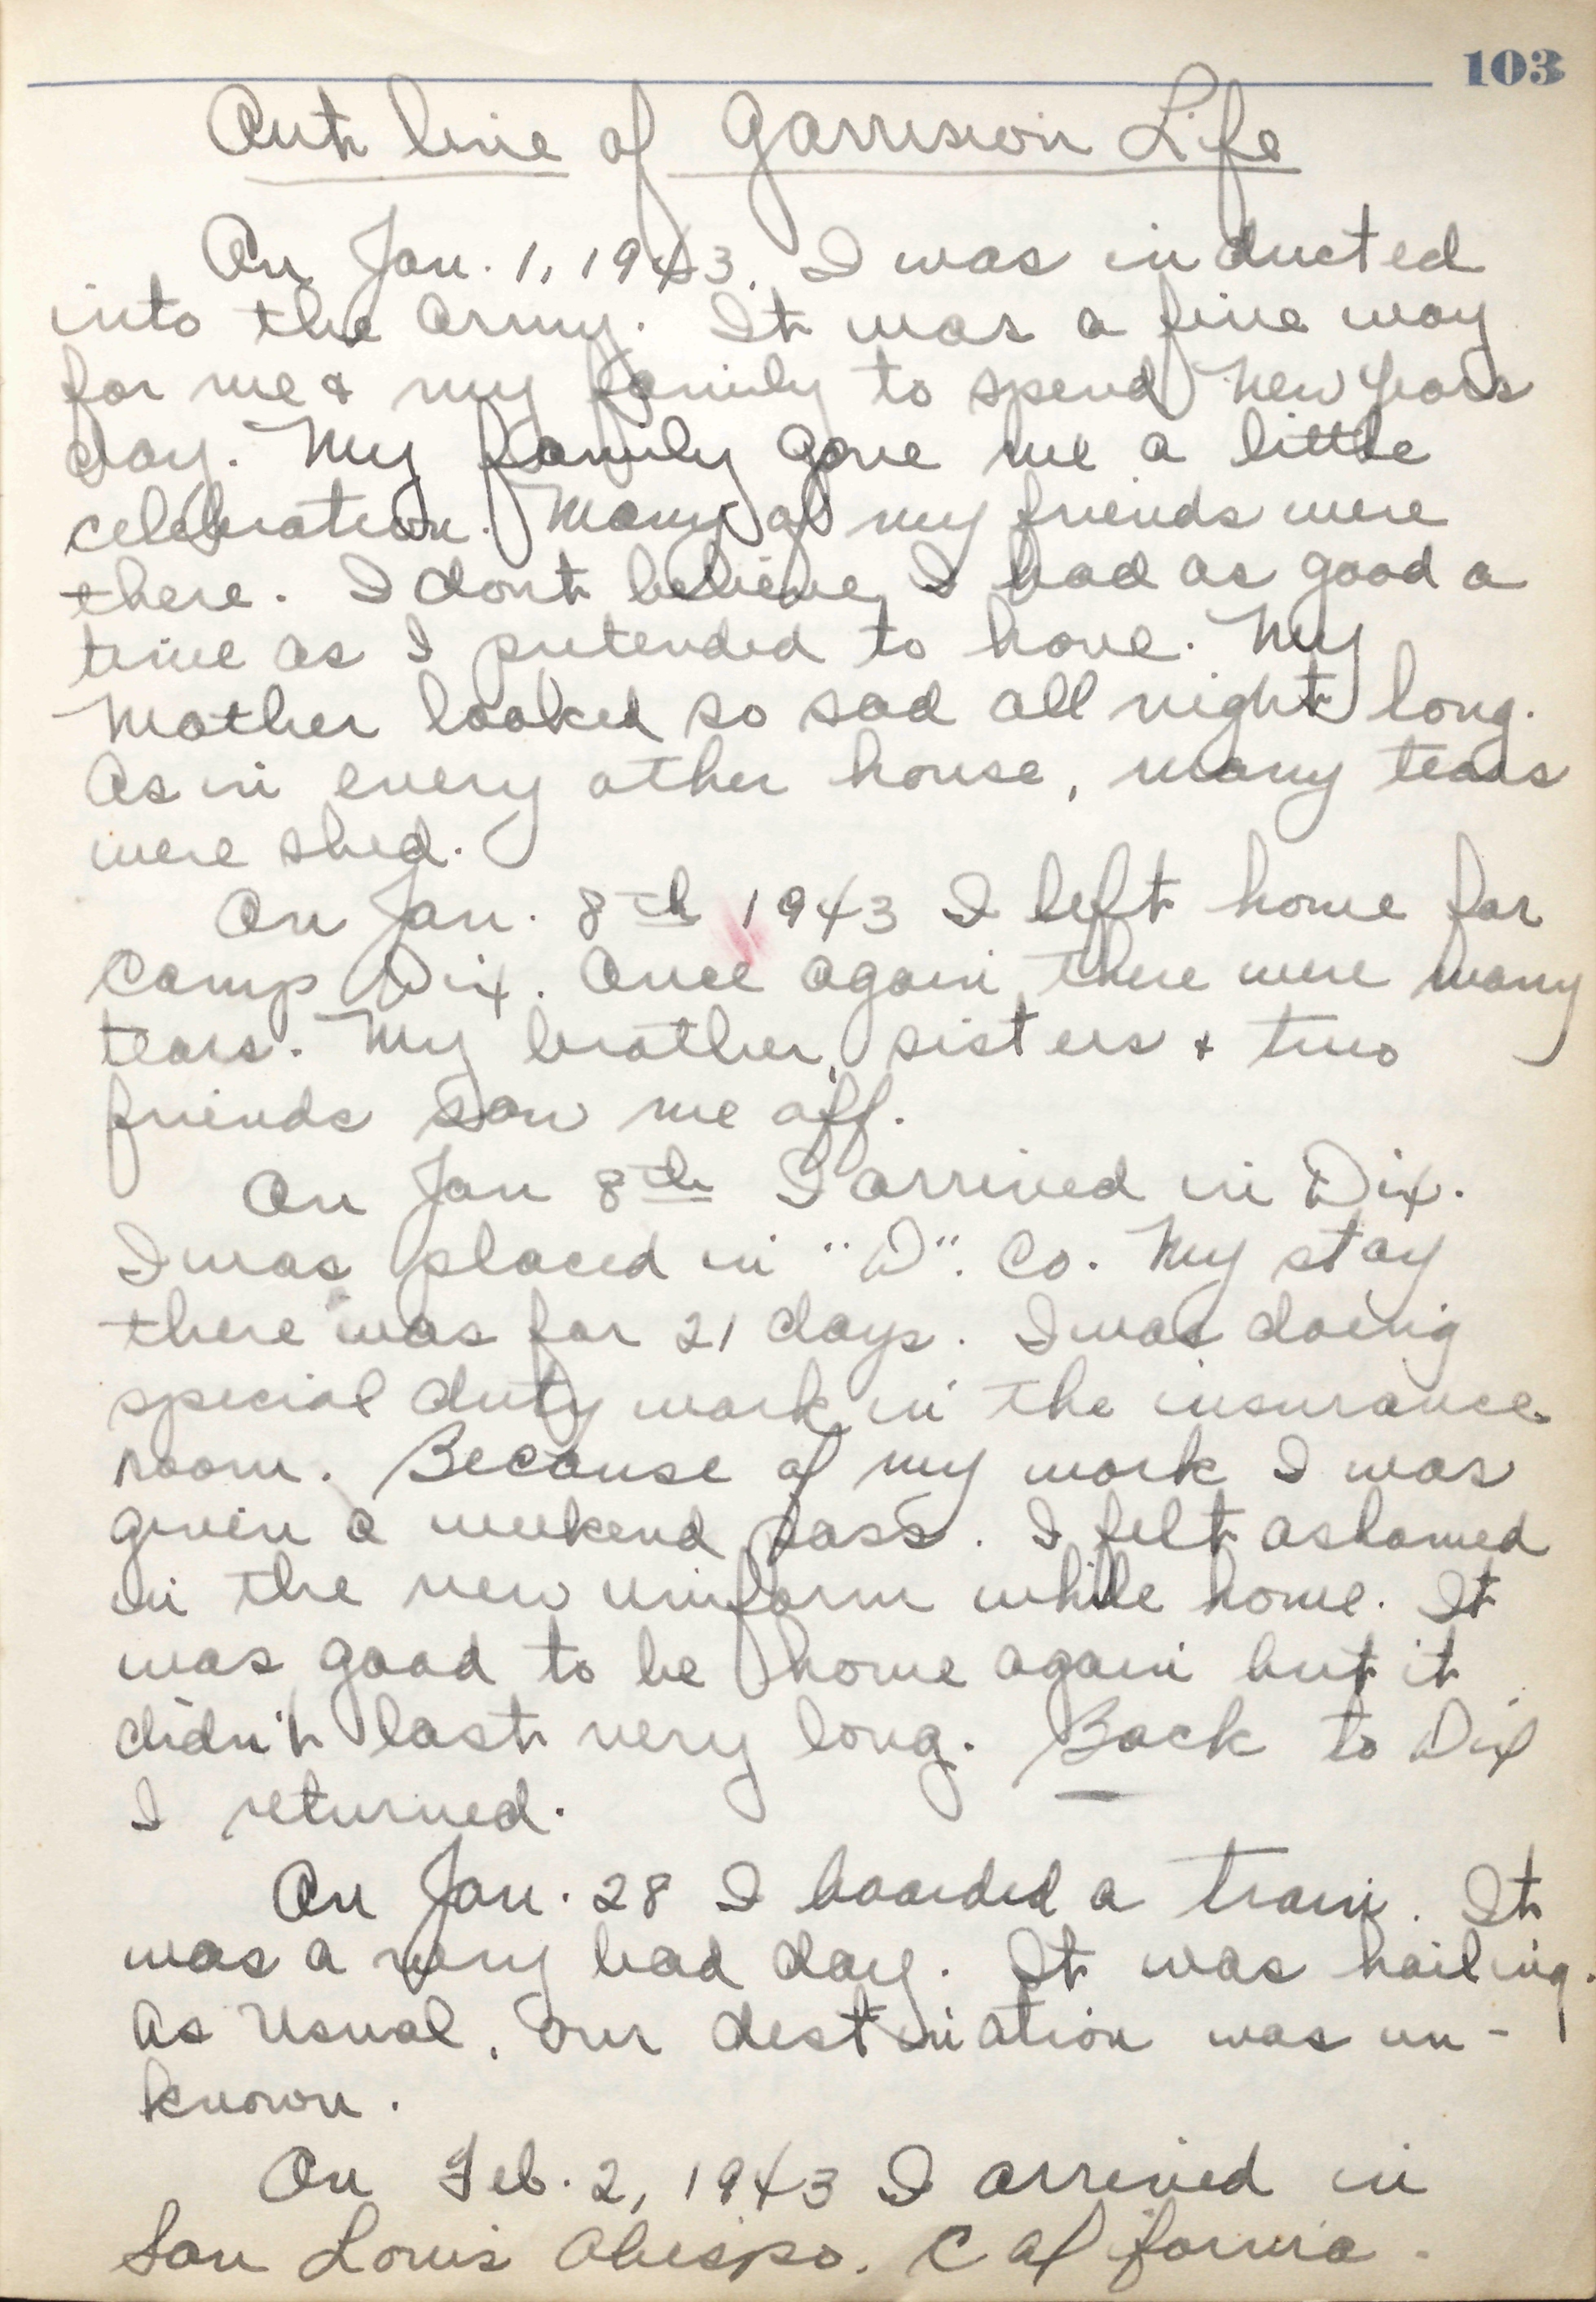 103
Out line of Garrision Life
On Jan. 1, 1943, I was inducted
into the Army. It was a fine way
for me & my family to spend New Years
day. My family gave me a little
celebration. Many of my friends were
there. I dont believe I had as good a
time as I pretended to have. My
Mother looked so sad all night long.
As in every other house, many tears
were shed.
On Jan. 8th 1943 I left home for
Camp Dix. Once again there were many
tears. My brother, sisters & two
friends saw me off.
On Jan 8th I arrived in Dix.
I was placed in "D". Co. My stay
there was for 21 days. I was doing
special duty work in the insurance
room. Because of my work I was
given a weekend pass. I felt ashamed
in the new uniform while home. It
was good to be home again but it
didn't last very long. Back to Dix
I returned.
On Jan. 28 I boarded a train. It
was a very bad day. It was hailing.
As Usual, our destination was un-
known.
On Feb. 2, 1943 I arrived in
San Louis Obispo, California.